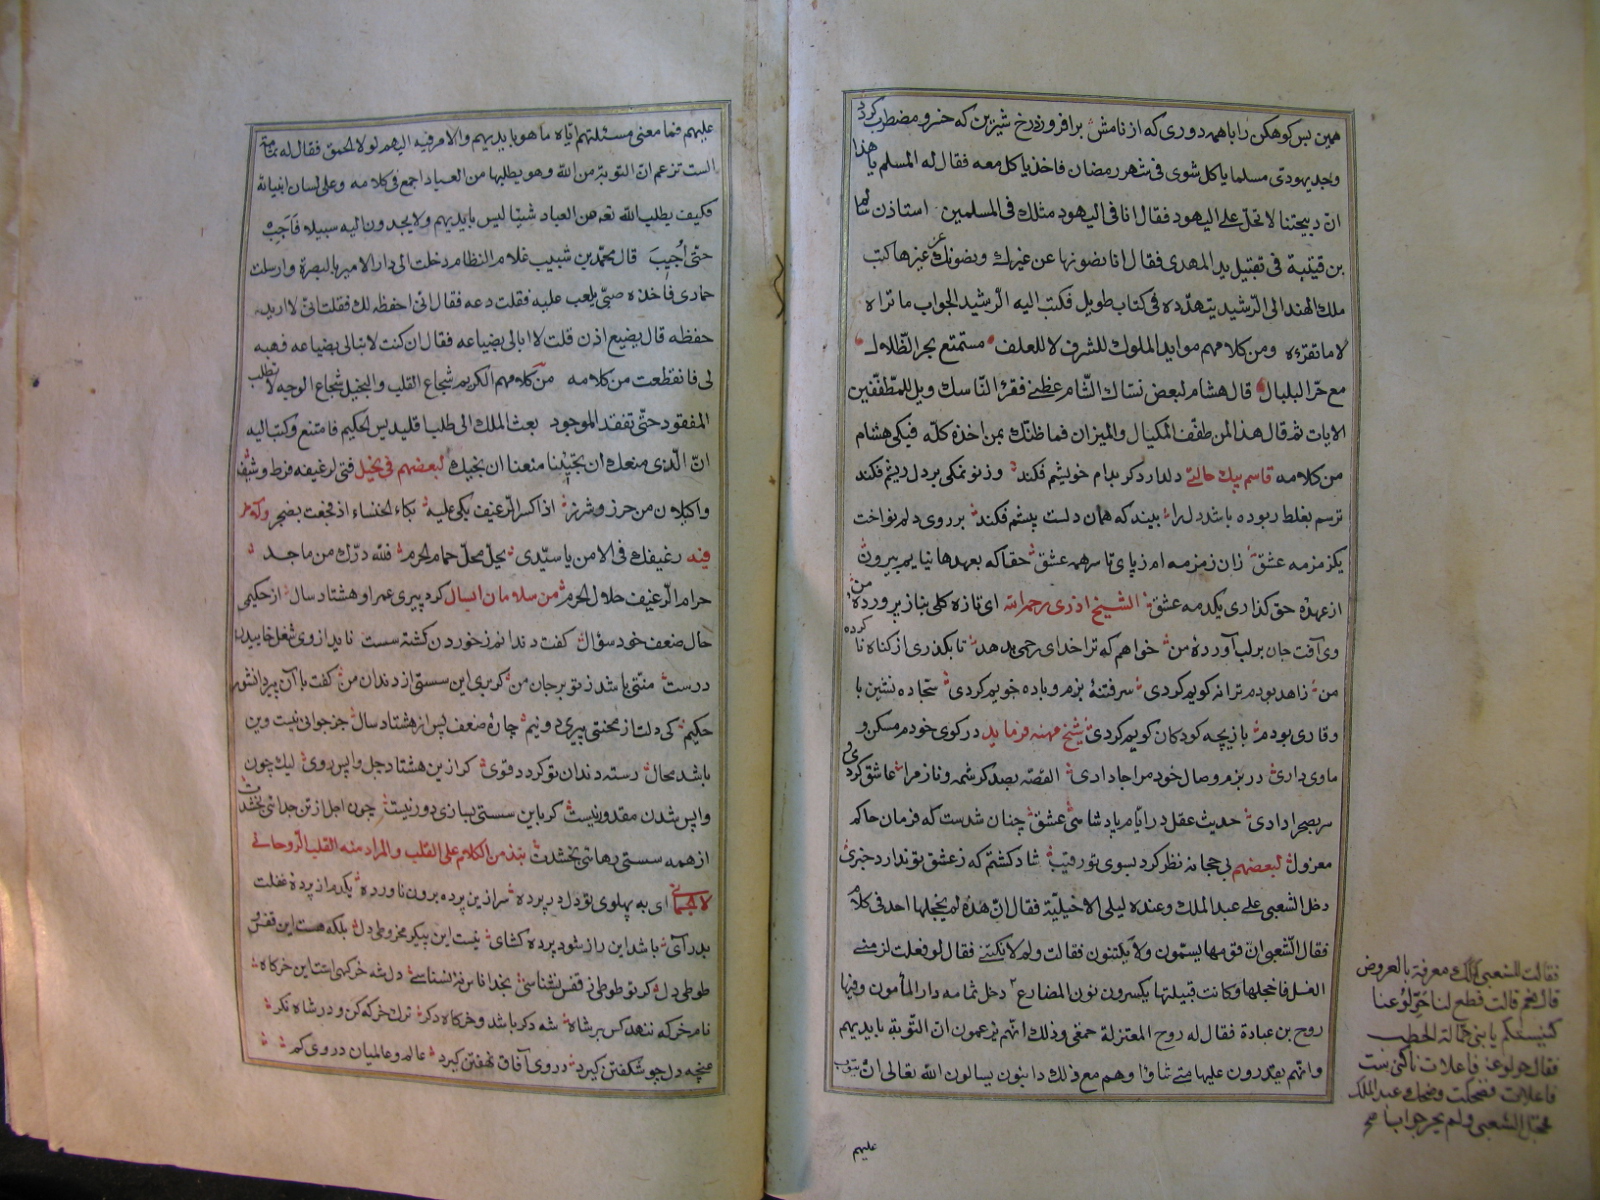 همین بس کوهکن را با همه دوری که از نامش برافروزد رخ شیرین که خسرو مضطرب کرد
وجد یهودی مسلما یاکل شوی فی شهر رمضان فاخذ یاکل معه فقال له المسلم یا هذا
انّ ذبیحتنا لا تحلّ علی الیهود فقال انا فی الیهود مثلک فی المسلمین استاذن سالم
بن قتیبة فی تقبیل ید المهدی فقال انا نصونها عن غیرک و نصونک عن غیرها کتب
ملک الهند الی الرّشید یتهدّده فی کتاب طویل فکتب الیه الرّشید الجواب ما تراه
لا ما تقرئه ومن کلامهم مواید الملوک للشرف لا للعلف مستمتع ببرد الظّلال
مع حرّ البلبال قال هشام لبعض نسّاک الشّام عظنی فقرء النّاسک ویل للمطفّفین
الایات ثم قال هذا لمن طفّف المکیال والمیزان فما ظنّک بمن اخذه کلّه فبکی هشام
من کلامه قاسم بیک حالتی دلدار دکر بدام خویشم فکند وز نو نمکی بر دل ریشم فکند
ترسم بغلط ربوده باشد دل را بیند که همان دلست پیشم فکند بر روی دلم نواخت
یک زمزمه عشق زان زمزمه ام ز پای تا سر همه عشق حقا که بعهدها نیایم بیرون
از عهده حق کذاری یکدمه عشق الشیخ اذری رحمه الله ای تازه کلی بناز پرورده من
وی آفت جان بر لب آورده من خواهم که ترا خدای رحمی بدهد تا بکذری از کناه نا کرده
من زاهد بودم ترانه کویم کردی سر فتنۀ بزم و باده جویم کردی سجاده نشین با
وقاری بودم بازیچه کودکان کویم کردی شیخ مهنه فرماید در کوی خودم مسکن و
ماوی دادی در بزم وصال خود مرا جا دادی القصه بصد کرشمه و ناز مرا عاشق کردی و
سر بصحرا دادی حدیث عقل در ایام پادشاهی عشق چنان شدست که فرمان حاکم
معزول لبعضهم بی حجابانه نظر کرد بسوی تو رقیب شاد کشتم که ز عشق تو ندارد خبری
دخل الشعبی علی عبد الملک وعنده لیلی الاخیلیّة فقال انّ هذه لم یخجلها احد فی کلام
فقال الشّعبی انّ قومها یسمّون ولا یکتنون فقالت ولم لا نکتنی فقال لو فعلت لزمنی
الغسل فاخجلها وکانت قبیلتها یکسرون نون المضارع دخل ثمامه دار المأمون وفیها
روح بن عبادة فقال له روح المعتزلة حمقی وذلک انهم یزعمون ان التّوبة بایدیهم
وانهم یقدرون علیها متی شاؤا وهم مع ذلک دائبون یسالون الله تعالی ان یتوب
علیهم
فقالت للشعبی الک معرفة بالعروض
قال نعم قالت قطع لنا حوّلوا عنا
کنیستکم یا بنی حمالة الحطب
فقال حولو عن فاعلات ناکنی ست
فاعلات فضحکت وضحک عبد الملک
فخجل الشعبی ولم یحر جوابا صح
علیهم فما معنی مسئلتهم ایّاه ما هو بایدیهم والامر فیه الیهم لولا الحمق فقال له ثمامة
الست تزعم انّ التوبة من الله وهو یطلبها من العباد اجمع فی کلامه وعلی لسان انبیائه
فکیف یطلب الله تع من العباد شیئا لیس بایدیهم ولا یجدون الیه سبیلا فاجب
حتی أجیب قال محمد بن شبیب غلام النظام دخلت الی دار الامیر بالبصرة وارسلت
حماری فاخذه صبیّ یلعب علیه فقلت دعه فقال انی احفظه لک فقلت انی لا ارید
حفظه قال یضیع اذن قلت لا ابالی بضیاعه فقال ان کنت لا تبالی بضیاعه فهبه
لی فانقطعت من کلامه من کلامهم الکریم شجاع القلب والبخیل شجاع الوجه لا تطلب
المفقود حتّی تفقد الموجود بعث الملک الی طلب اقلیدس الحکیم فامتنع وکتب الیه
انّ الّذی منعک ان تجیئنا منعنا ان نجیئک لبعضهم فی بخیل فتی لرغیفه قرط وشنف
واکلیلان من خرز وشزر اذا کسر الرّغیف بکی علیه بکاء الخنساء اذ فجعت بصخر وله
فیه رغیفک فی الامن یا سیّدی یحلّ محلّ حمام الحرم فلله درّک من ماجد
حرام الرّغیف حلال الحرم من سلامان و ابسال کرد پیری عمر او هشتاد سال از حکیمی
حال ضعف خود سؤال کفت دندانم ز خوردن کشته سست ناید از وی شغل خاییدن
درست منتی باشد ز تو بر جان من کر بری این سستی از دندان من کفت با آن پیر دانشور
حکیم کی دلت از محنت پیری دو نیم چارۀ ضعف پس از هشتاد سال جز جوانی نیست وین
باشد محال رسته دندان تو کردد قوی کر ازین هشتاد چل واپس روی لیک چون
واپس شدن مقدور نیست کر باین سستی بسازی دور نیست چون اجل از تن جدائی بخشدت
از همه سستی رهائی بخشدت نبذ من الکلام علی القلب والمراد منه القلب الرّوحانی
لا الجسمانی ای به پهلوی تو دل در پرده سر ازین پرده برون ناورده یکدم از پردۀ غفلت
بدر آی باشد این راز شود پرده کشای نیست این پیکر مخروطی دل بلکه هست این قفس
طوطی دل کر تو طوطی ز قفس نشناسی بخدا ناس نه نسناسی دل شه خرکهی است این خرکاه
نام خرکه ننهد کس بر شاه شه دکر باشد و خرکاه دکر ترک خرکه کن و در شاه نکر
غنچه دل چو شکفتن کیرد در وی آفاق نهفتن کیرد عالم و عالمیان در وی کم